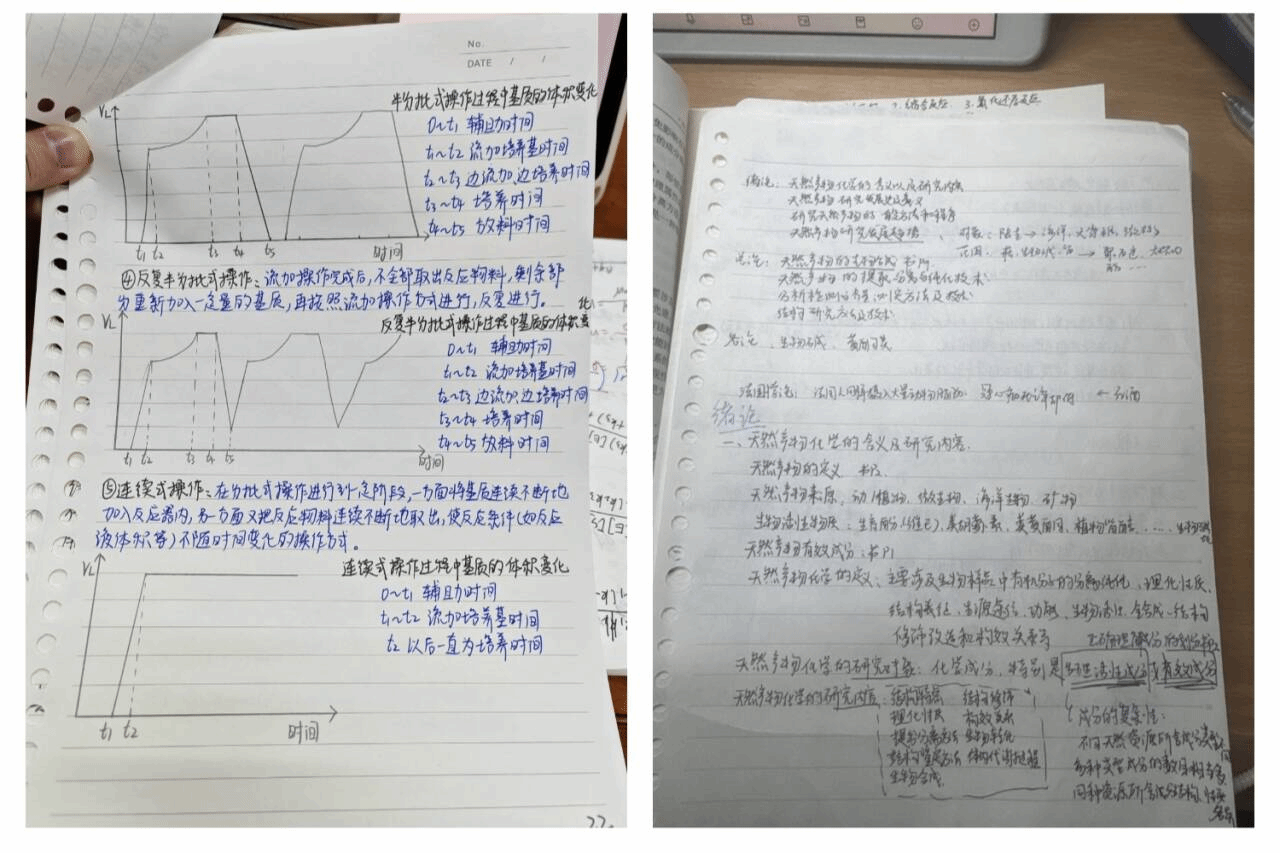 No.
DATE / /
半分批式操作过程中基质的体积变化
VL
0~t1 辅助时间
t1~t2 流加培养基时间
t2~t3 边流加、边培养时间
t3~t4 培养时间
t4~t5 放料时间
t1 t2 t3 t4 t5 时间
④反复半分批式操作:流加操作完成后,不全部取出反应物料,剩余部
分重新加入一定量的基质,再按照流加操作方式进行,反复进行。
VL
反复半分批式操作过程中基质的体积变
0~t1 辅助时间
t1~t2 流加培养基时间
t2~t3 边流加、边培养时间
t3~t4 培养时间
t4~t5 放料时间
t1 t2 t3 t4 t5 时间
⑤连续式操作:在分批式操作进行到一定阶段,一方面将基质连续不断地
加入反应器内,另一方面又把反应物料连续不断地取出,使反应条件(如反应
液体积等)不随时间变化的操作方式。
VL
连续式操作过程中基质的体积变化
0~t1 辅助时间
t1~t2 流加培养基时间
t2 以后一直为培养时间
t1 t2 时间
3.氧化还原反应
绪论:天然产物化学的含义以及研究内容
天然产物研究发展史及意义
研究天然产物的一般方法和程序
天然产物研究发展趋势
天然产物的提取分离与纯化技术
结构研究方法及技术
各论:生物碱、黄酮类
绪论
一、天然产物化学的含义及研究内容.
天然产物的定义 书P1
天然产物来源,动/植物、微生物、海洋生物、矿物
天然产物有效成分:书P1
天然产物化学的定义:主要涉及生物样品中有机分子的分离纯化、理化性质、
结构表征、来源途径、功能、生物活性、全合成、结构
修饰改造和构效关系等
天然产物化学的研究对象:化学成分,特别是生理活性成分或有效成分
天然产物化学的研究内容:结构解层 结构修饰
理化性质 构效关系
提取分离方法 生物转化
结构鉴定方法
生物合成
成分的复杂性: